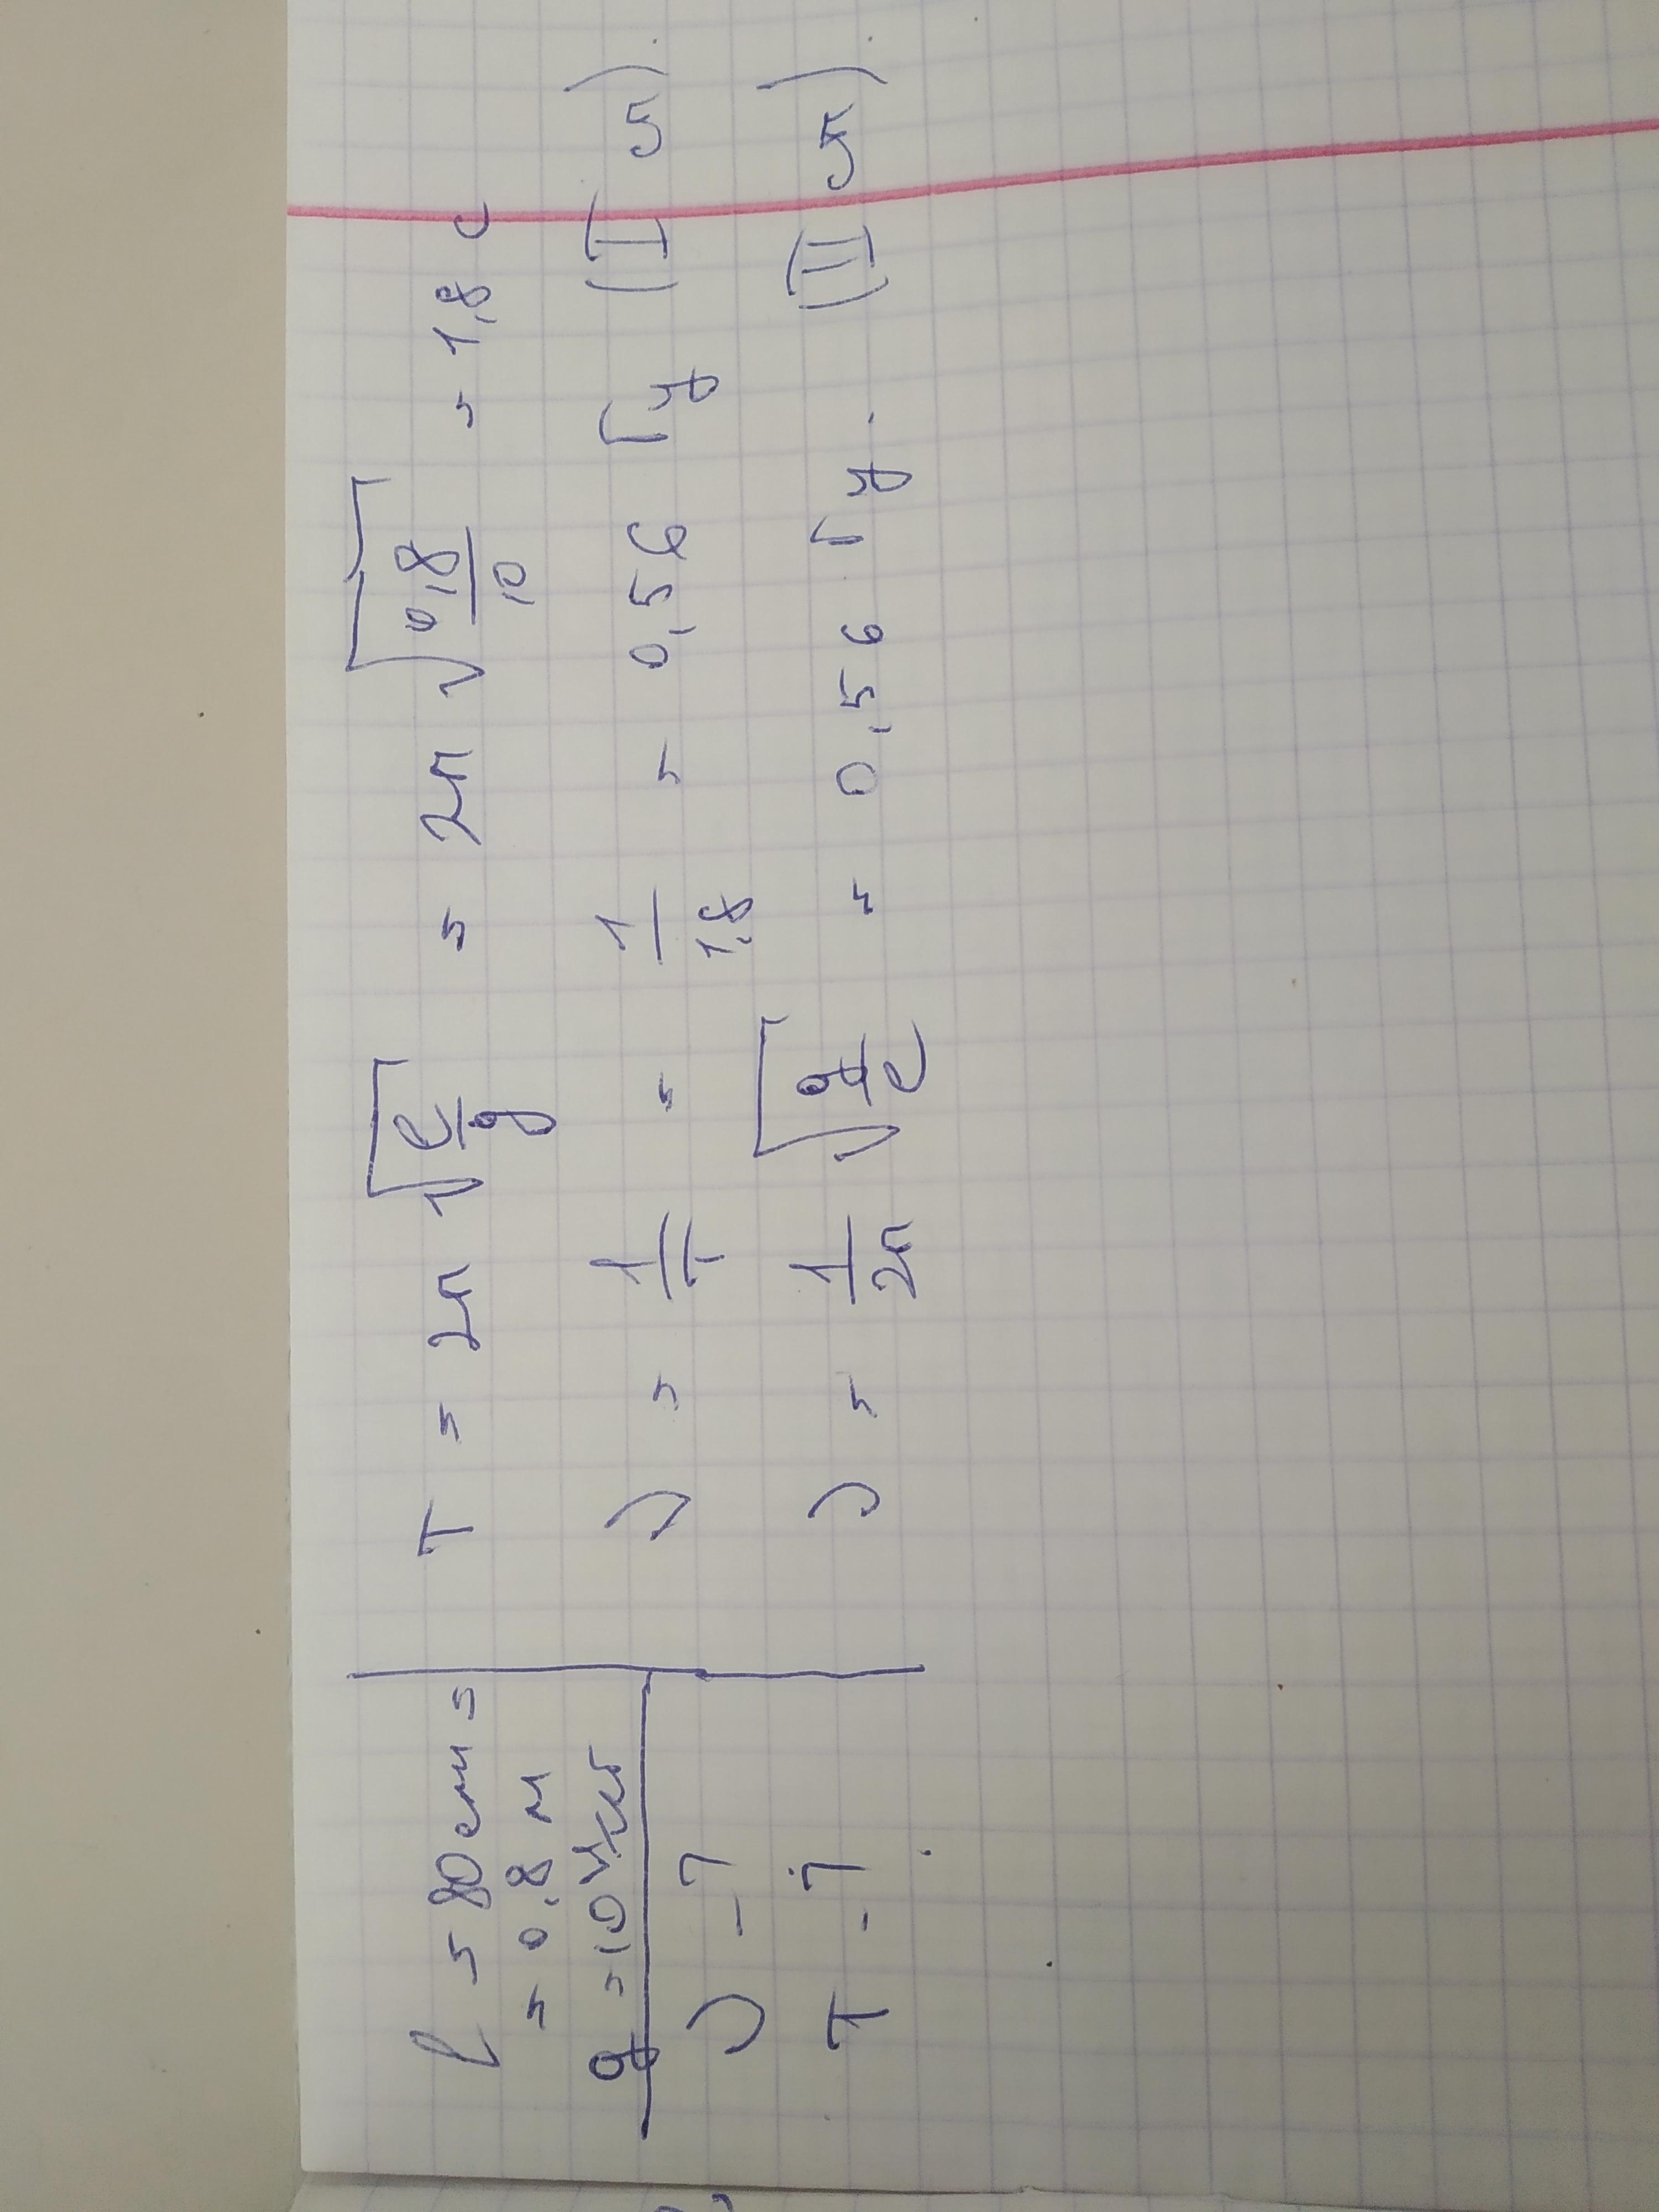 l = 80 см =
= 0,8 м
g = 10 Н/кг
ν - ?
T - ?
T = 2π √(l/g) = 2π √(0,8/10) = 1,8 с
ν = 1/T = 1/1,8 = 0,56 Гц (I сп)
ν = 1/2π √(g/l) = 0,56 Гц. (II сп)